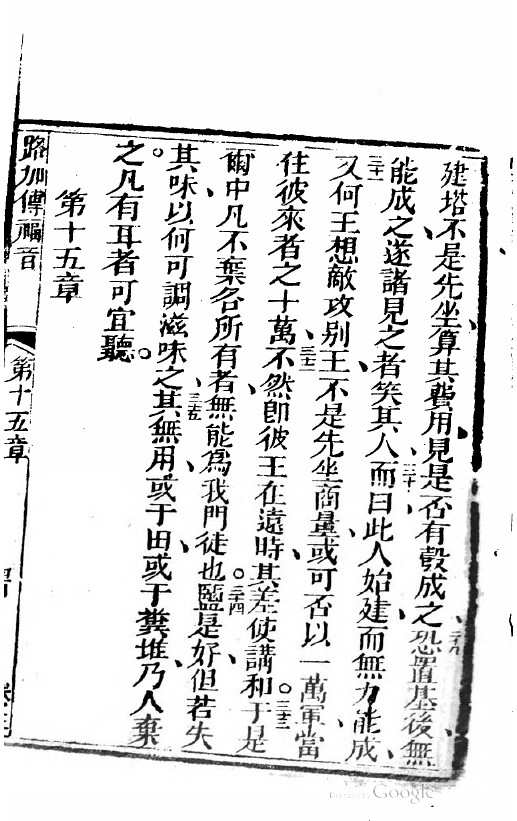 建塔不是先坐算其費用見是否有彀成之恐置基後無
能成之遂諸見之者笑其人而曰此人始建而無力能成
三十一又何王想敵攻別王不是先坐商量或可否以一萬軍當
徃彼來者之十萬不然卽彼王在遠時其差使講和于是
爾中凡不棄各所有者無能爲我門徒也鹽是好但若失
其味以何可調滋味之其無用或于田或于糞堆乃人棄
之凡有耳者可宜聽
第十五章
路加傳福音
第十五章
Google